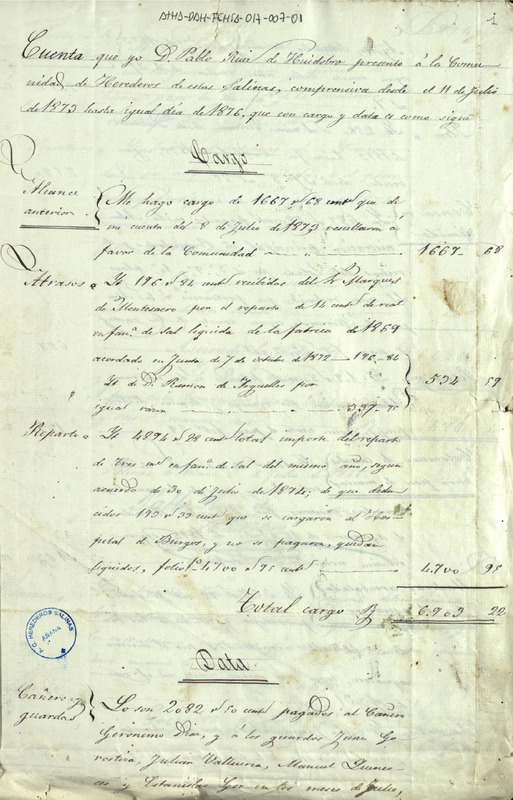 ATHA-DAH-FCHSA-017-007-01
1
Cuenta que yo D. Pablo Ruiz de Huidobro presento á la Comu-
nidad de Herederos de estas Salinas, comprensiva desde el 11 de Julio
de 1873 hasta igual dia de 1876, que con cargo y data es como sigue
Cargo
Alcance anterior
Me hago cargo de 1667 r. 68 cent. que de
mi cuenta del 8 de Julio de 1873 resultaron á
favor de la Comunidad 1667 68
Atrasos
Yt. 196 r. 84 cent. recibidos del Sr. Marques
de Montesacro por el reparto de 14 cent. de real
en fan.a de sal liquida de la fabrica de 1869
acordado en Junta de 7 de octubre de 1872 196,84
Yt. de D. Ramon de por
igual razon 337,75
534 59
Reparto
Yt. 4894 r. 28 cent. total importe del reparto
de tres en fan.a de sal del mismo año, segun
acuerdo de 30 de Julio de 1874; de que dedu-
cidos 193 r. 33 cent. que se cargaron al Hos-
pital de Burgos, y no se pagaron, quedan
liquidos, 4700 r. 95 cent. 4.700 95
Total cargo 6.903 22
T.C. HEREDEROS SALINAS
AÑANA
Data
Cañero y guardas
Lo son 2082 r. 50 cent. pagados al Cañero
Geronimo Diaz, y á los guardas Juan Go-
rostiza, Julian Valluerca, Manuel
y Estanislao en los meses de Julio,